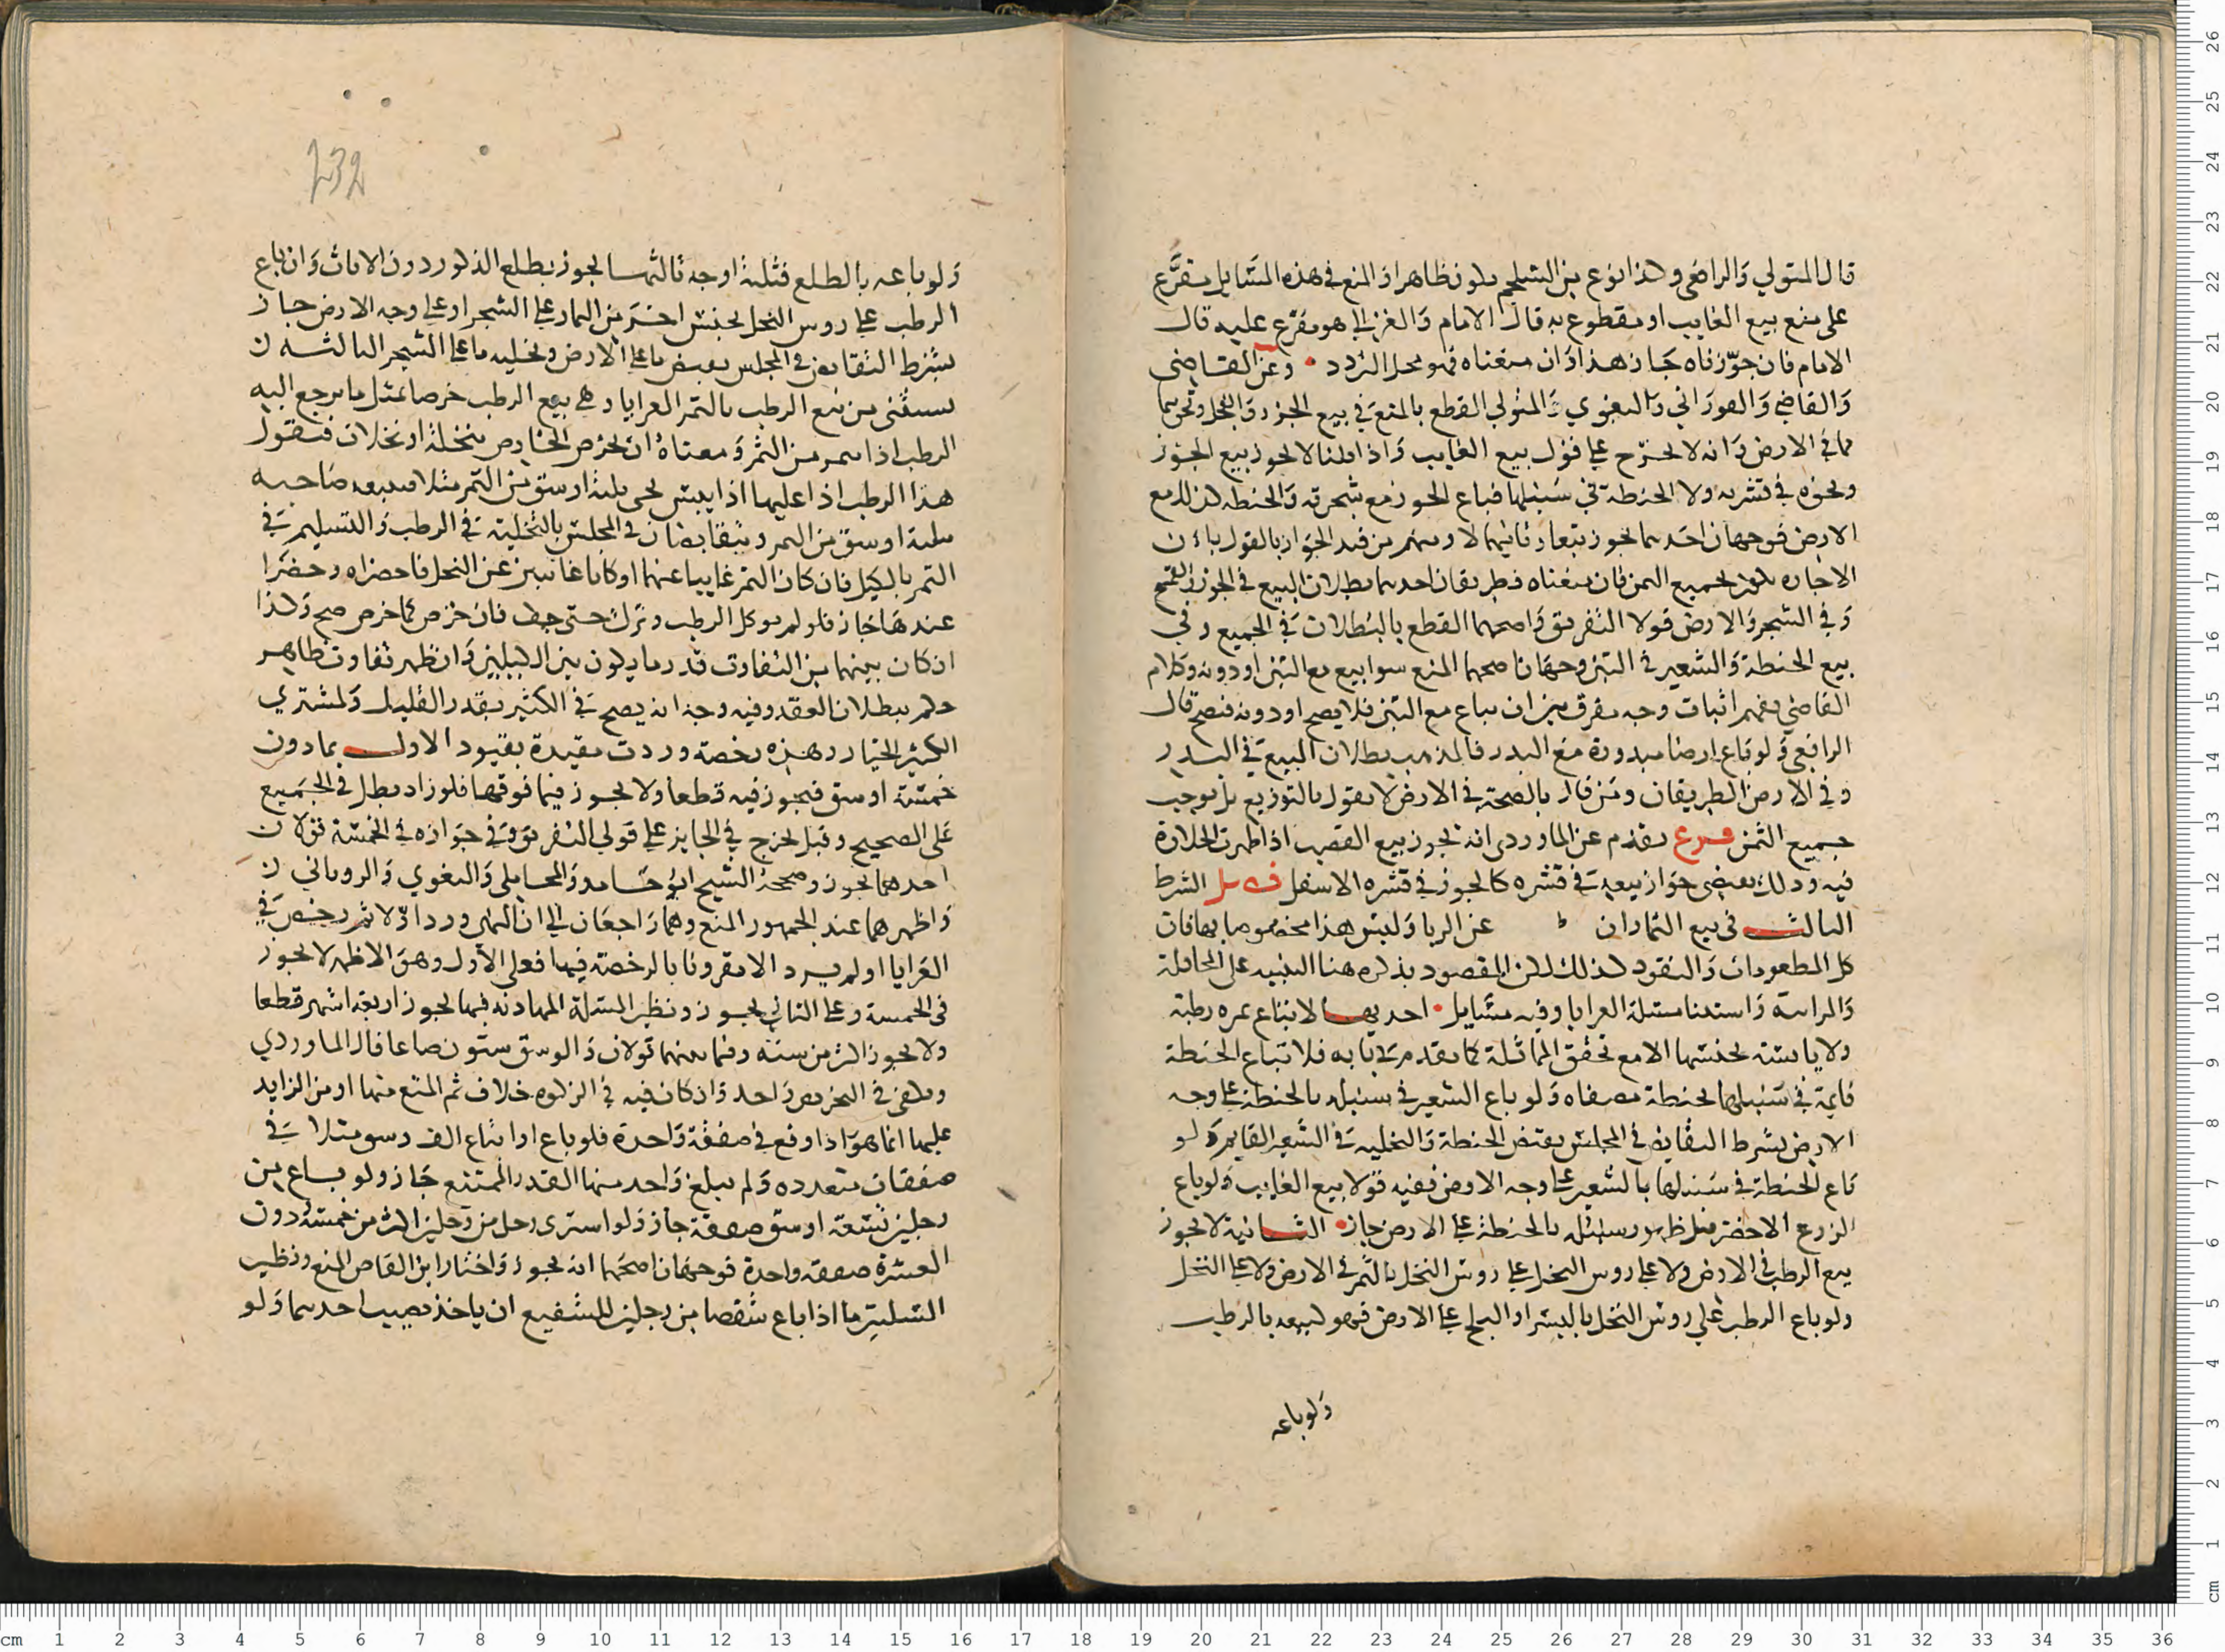 قال المتولي والرافعي وكذا نوع من الشلجم يكون ظاهرا والمنع في هذه المسايل يتفرع
على منع بيع الغايب او مقطوع به قال الامام والغزالي هو مفرع عليه قال
الامام فان جوزناه جاز هذا وان منعناه فهو محل التردد وعن القاضي
والقاضي والفوراني والبغوي والمتولي القطع بالمنع في بيع الجزر والفجل ونحوهما
مما في الارض وانه لا يخرج على قول بيع الغايب واذا قلنا لا يجوز بيع الجوز
ونحوه في قشريه ولا الحنطة في سنبلها فباع الجوز مع شجرته والحنطة كذلك مع
الارض فوجهان احدهما يجوز تبعا وثانيهما لا ومنهم من قيد الجواز بالقول بان
الاجازه بجميع الثمن فان منعناه فطريقان احدهما بطلان البيع في الجوز والقمح
وفي الشجر والارض قولا التفريق واصحهما القطع بالبطلان في الجميع وفي
بيع الحنطة والشعير في التبن وجهان اصحهما المنع سوا بيع مع التبن او دونه وكلام
القاضي يفهم اثبات وجه يفرق بين ان يباع مع التبن فلا يصح او دونه فيصح قال
الرافعي ولو باع ارضا مبذورة مع البذر فالمذهب بطلان البيع في البذر
وفي الارض الطريقان ومن قال بالصحة في الارض لا يقول بالتوزيع بل يوجب
جميع الثمن فرع تقدم عن الماوردي انه يجوز بيع القصب اذا ظهرت الحلاوة
فيه وذلك يقتضي جواز بيعه في قشره كالجوز في قشره الاسفل فصل الشرط
الثالث في بيع الثمار ان عن الربا وليس هذا مخصوصا بها فان
كل المطعومات والنقود كذلك لكن المقصود بذكره هنا التنبيه على المحاقلة
والمزابنة واستثنا مسئلة العرايا وفيه مسايل احديها لا يباع ثمره رطبة
ولا يابسة بجنسها الا مع تحقق المماثلة كما تقدم في بابه فلا تباع الحنطة
قايمة في سنبلها بحنطة مصفاه ولو باع الشعير في سنبله بالحنطة على وجه
الارض بشرط التقابض في المجلس بقبض الحنطة والتخلية في الشعير القايم ولو
باع الحنطة في سنبلها بالشعير على وجه الارض ففيه قولا بيع الغايب ولو باع
الزرع الاخضر قبل ظهور سنبله بالحنطة على الارض جاز الثانية لا يجوز
بيع الرطب في الارض ولا على روس النخل على روس النخل بالتمر في الارض ولا على النخل
ولو باع الرطب على روس النخل بالبسر او البلح على الارض فهو كبيعه بالرطب
ولو باعه
232
ولو باعه بالطلع فثلثة اوجه ثالثها يجوز بطلع الذكور دون الاناث وان باع
الرطب على روس النخل بجنس اخر من الثمار على الشجر او على وجه الارض جاز
بشرط التقابض في المجلس بقبض ما على الارض وتخليه ما على الشجر الثالثة
يستثنى من بيع الرطب بالتمر العرايا وهي بيع الرطب خرصا بمثل ما يرجع اليه
الرطب اذا من التمر ومعناه ان يخرص الخارص نخلة او نخلات فيقول
هذا الرطب اذا عليها اذا يبس يجي ثلثة اوسق من التمر مثلا فيبيعه صاحبه
بثلثة اوسق من التمر ويتقابضان في المجلس بالتخلية في الرطب والتسليم في
التمر بالكيل فان كان التمر غايبا عنهما او كانا غايبين عن النخل فاحضراه وحضرا
عندها جاز فلو لم يوكل الرطب وترك حتى جف فان خرص كما خرص صح وكذا
ان كان بينهما من التفاوت قدر ما يكون بين الكيلين وان ظهر تفاوت ظاهر
حكم ببطلان العقد وفيه وجه انه يصح في الكثير بقدر القليل ولمشتري
الكثير الخيار وهذه رخصة وردت مقيدة بقيود الاول بما دون
خمسة اوسق فيجوز فيه قطعا ولا يجوز فيما فوقها فلو زاد بطل في الجميع
على الصحيح وقيل يخرج في الجايز على قولي التفريق وفي جوازه في الخمسة قولان
احدهما يجوز وصححه الشيخ ابو حامد والمحاملي والبغوي والروياني
واظهرهما عند الجمهور المنع وهما راجعان الى ان النهي ورد اولا ثم رخص في
العرايا او لم يرد الا مقرونا بالرخصة فيها فعلى الاول وهو الاظهر لا يجوز
في الخمسة وعلى الثاني يجوز ونظير المسئلة المهادنه فيها يجوز اربعة اشهر قطعا
ولا يجوز اكثر من سنه وفيما بينهما قولان والوسق ستون صاعا قال الماوردي
ويكفي في الخرص واحد وان كان فيه في الزكوه خلاف ثم المنع منها او من الزايد
عليها انما هو اذا وقع في صفقة واحدة فلو باع او ابتاع الف وسق مثلا في
صفقات متعدده ولم يبلغ واحد منها القدر الممتنع جاز ولو باع من
رجلين تسعة اوسق صفقة جاز ولو اشترى رجل من رجلين اكثر من خمسة ودون
العشرة صفقه واحدة فوجهان اصحهما انه يجوز واختار ابن القاص المنع ونظير
المسئلتين ما اذا باع شقصا من رجلين للشفيع ان ياخذ نصيب احدهما ولو